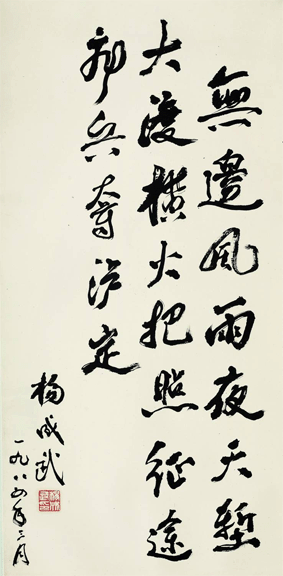 無邊風雨夜天塹
大渡橫火把照征途
郄兵奪泸定
楊成武
一九八四年三月